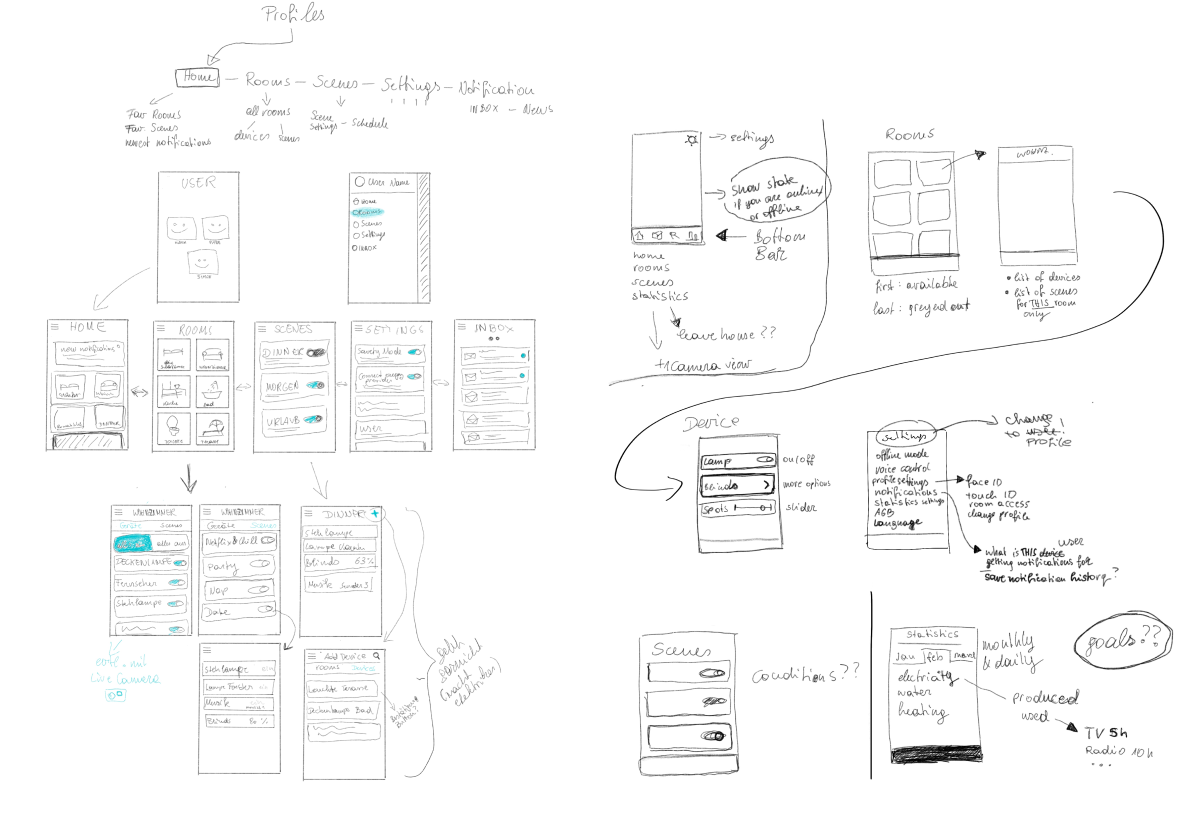 Profiles
Home — Rooms — Scenes — Settings — Notification
Fav Rooms
Fav Scenes
newest notifications
all rooms
devices
scenes
Scene
Settings — Schedule
INBOX — News
USER
User Name
Home
Rooms
Scenes
Settings
Inbox
HOME
new notifications
ROOMS
SCENES
DINNER
MORGEN
URLAUB
SETTINGS
Security Mode
user
INBOX
WOHNZIMMER
Geräte Scenes
alles aus
DECKENLAMPE
Fernseher
Stehlampe
evtl. mit
Live Camera
WOHNZIMMER
Geräte Scenes
Netflix & Chill
party
Nap
Date
DINNER +
Stehlampe
Lampe
Blinds 63%
Musik Sonders
Stehlampe
Lampe Fenster
Musik
Blinds 80 %
Add Device
rooms
Leuchte
Deckenlampe Bad
settings
Show state
if you are online
or offline
Bottom
Bar
home
rooms
scenes
statistics
leave house ??
+1 Camera view
Rooms
first : available
last : greyed out
WOHNZ.
• list of devices
• list of scenes
for THIS room
only
Device
Lamp
on/off
Blinds
more options
Spots
slider
settings
offline mode
voice control
profile settings
notifications
statistics settings
AGB
Language
change
to
profile
face ID
touch ID
room access
change profile
user
what is THIS device
getting notifications for
save notification history?
Scenes
conditions??
statistics
Jan feb
electricity
water
heating
monthly
& daily
produced
used
TV 5h
Radio 10h
...
goals??